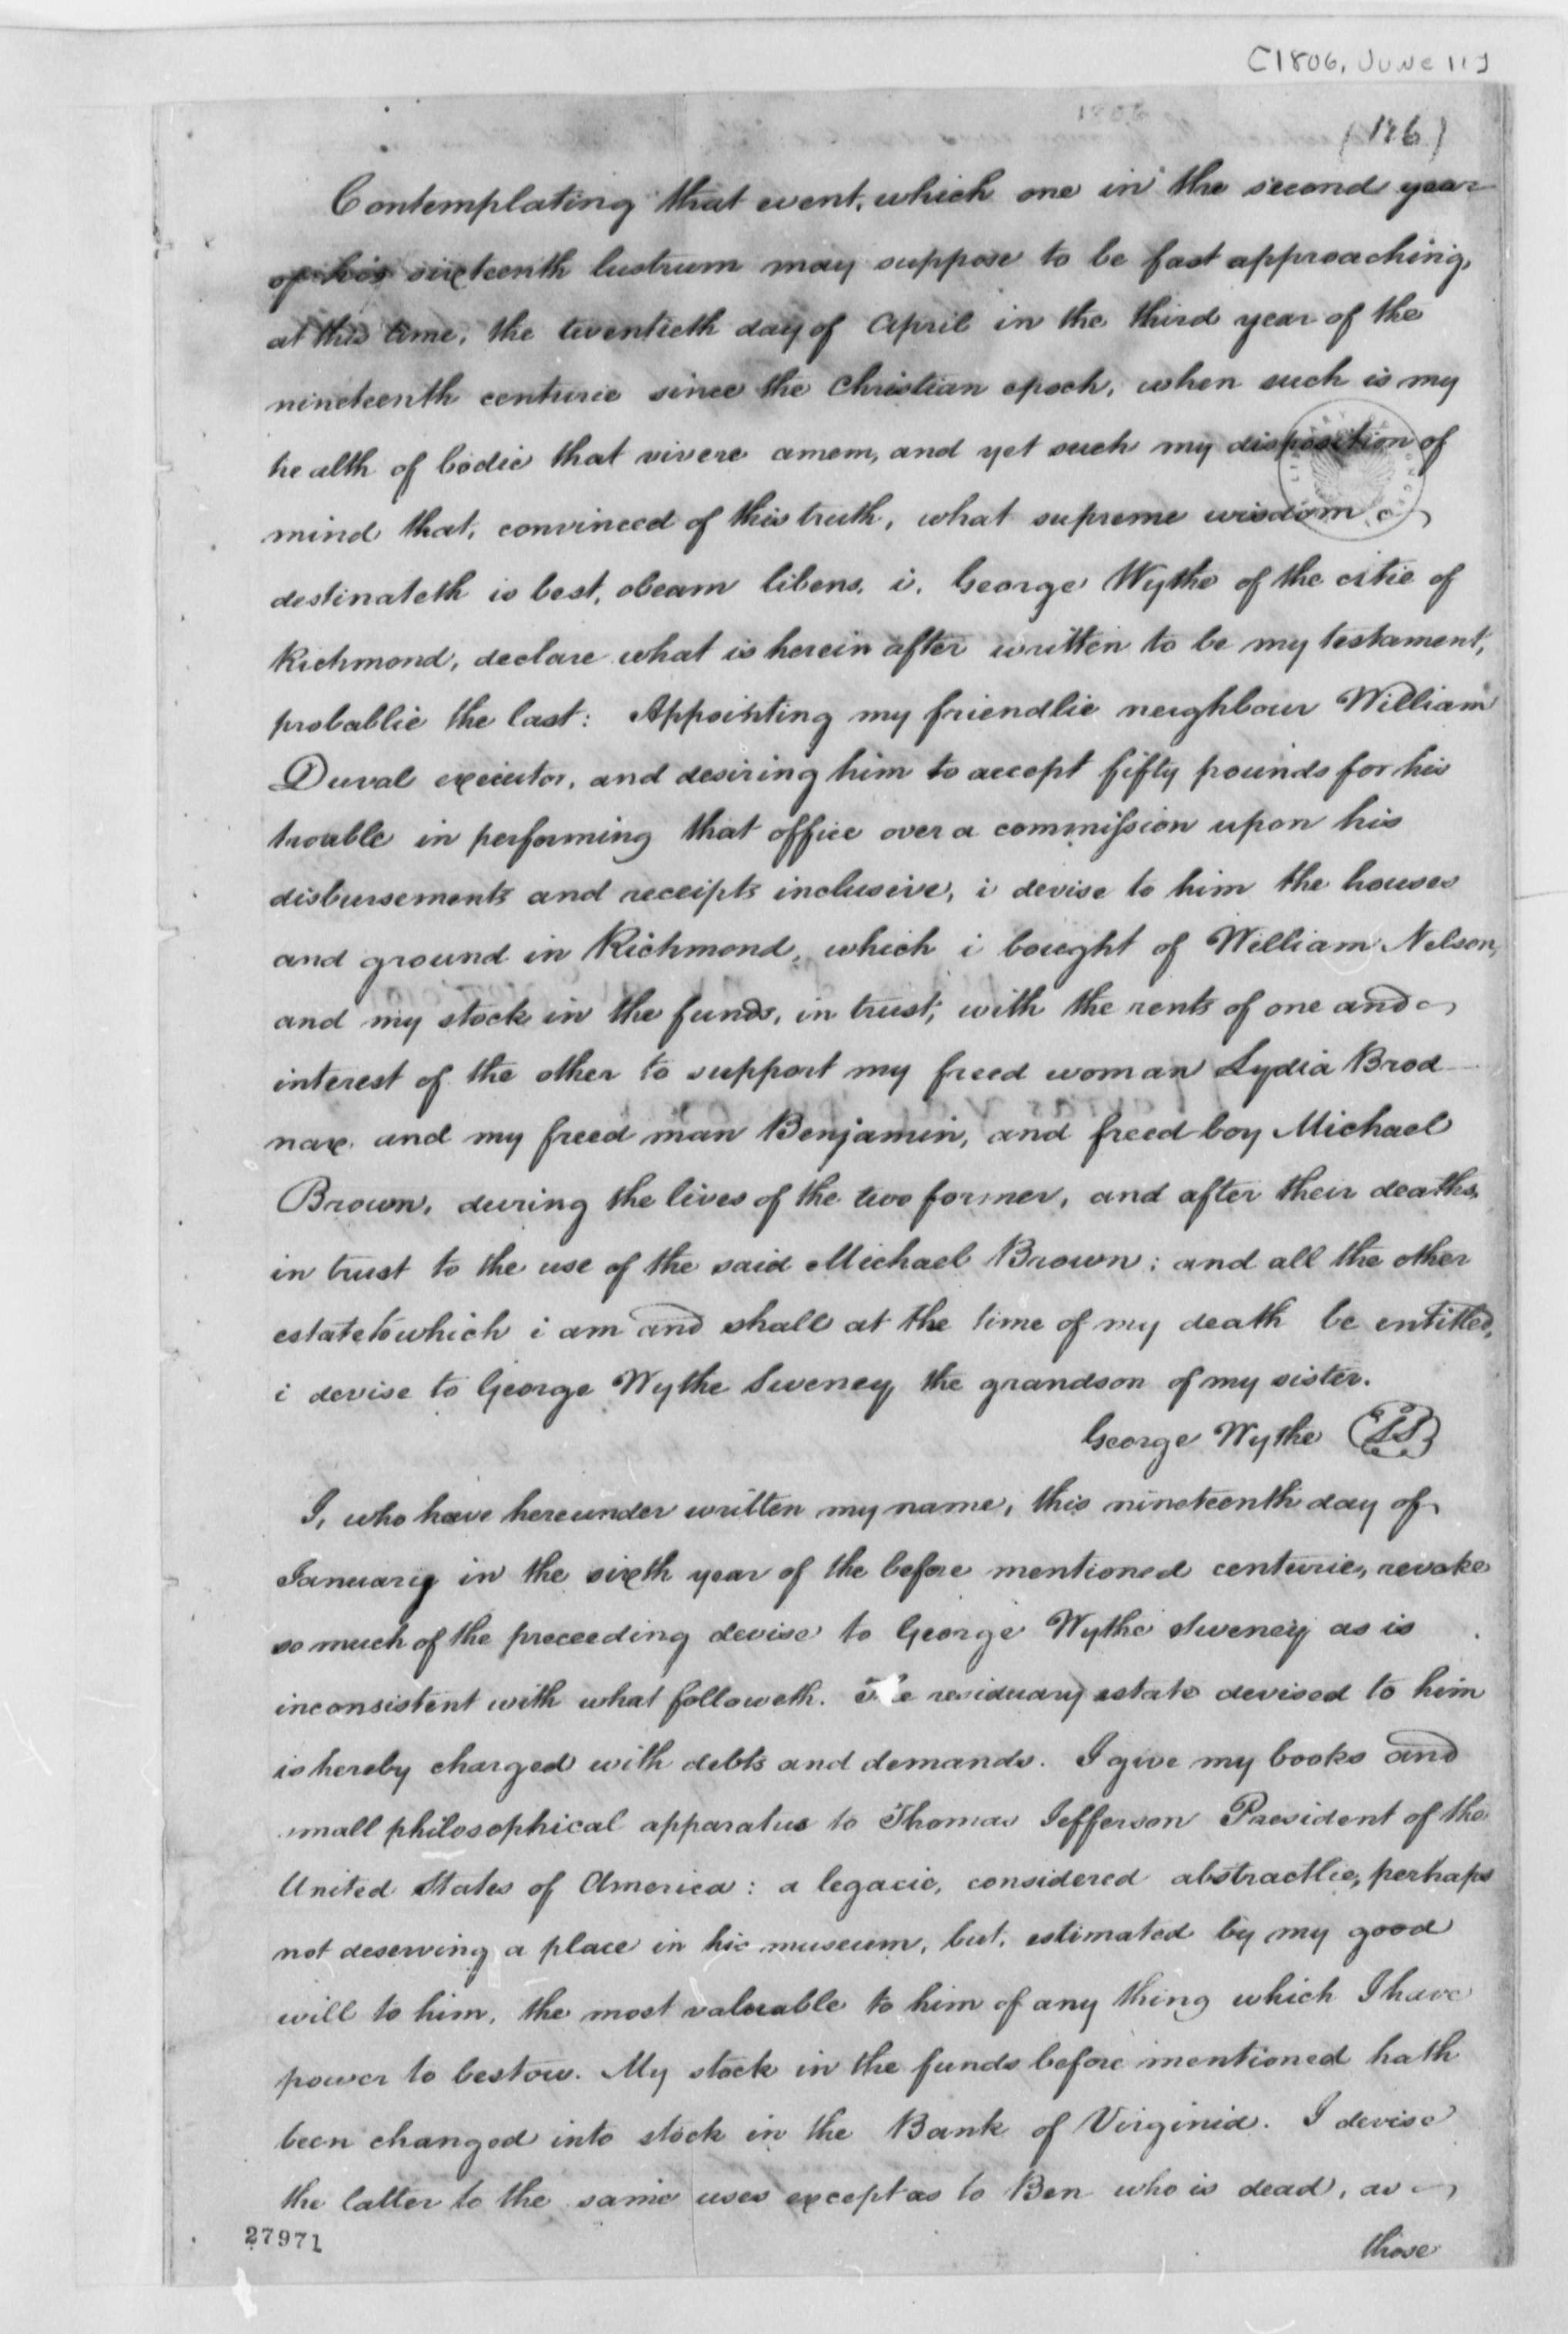 [1806, June 11]
(126)
Contemplating that event, which one in the second year
of his sixteenth lustrum may suppose to be fast approaching,
at this time, the twentieth day of April in the third year of the
nineteenth centurie since the Christian epoch, when such is my
health of bodie that vivere amem, and yet such my disposition of
mind that, convinced of this truth, what supreme wisdom
destinateth is best, obeam libens, i, George Wythe of the citie of
Richmond, declare what is herein after written to be my testament,
probablie the last: Appointing my friendlie neighbour William
Duval executor, and desiring him to accept fifty pounds for his
trouble in performing that office over a commission upon his
disbursements and receipts inclusive, i devise to him the houses
and ground in Richmond, which i bought of William Nelson,
and my stock in the funds, in trust, with the rents of one and
interest of the other to support my freed woman Lydia Brod
nax and my freed man Benjamin, and freed boy Michael
Brown, during the lives of the two former, and after their deaths,
in trust to the use of the said Michael Brown; and all the other
estate to which i am and shall at the time of my death be entitled,
i devise to George Wythe Sweney the grandson of my sister.
George Wythe LS
I, who have hereunder written my name, this nineteenth day of
Januarij in the sixth year of the before mentioned centurie, revoke
so much of the preceeding devise to George Wythe Sweney as is
inconsistent with what followeth. The residuary estate devised to him
is hereby charged with debts and demands. I give my books and
small philosophical apparatus to Thomas Jefferson President of the
United States of America: a legacie, considered abstractlie, perhaps
not deserving a place in his museum, but, estimated by my good
will to him, the most valuable to him of any thing which I have
power to bestow. My stock in the funds before mentioned hath
been changed into stock in the Bank of Virginia. I devise
the latter to the same uses except as to Ben who is dead, as
those
27971